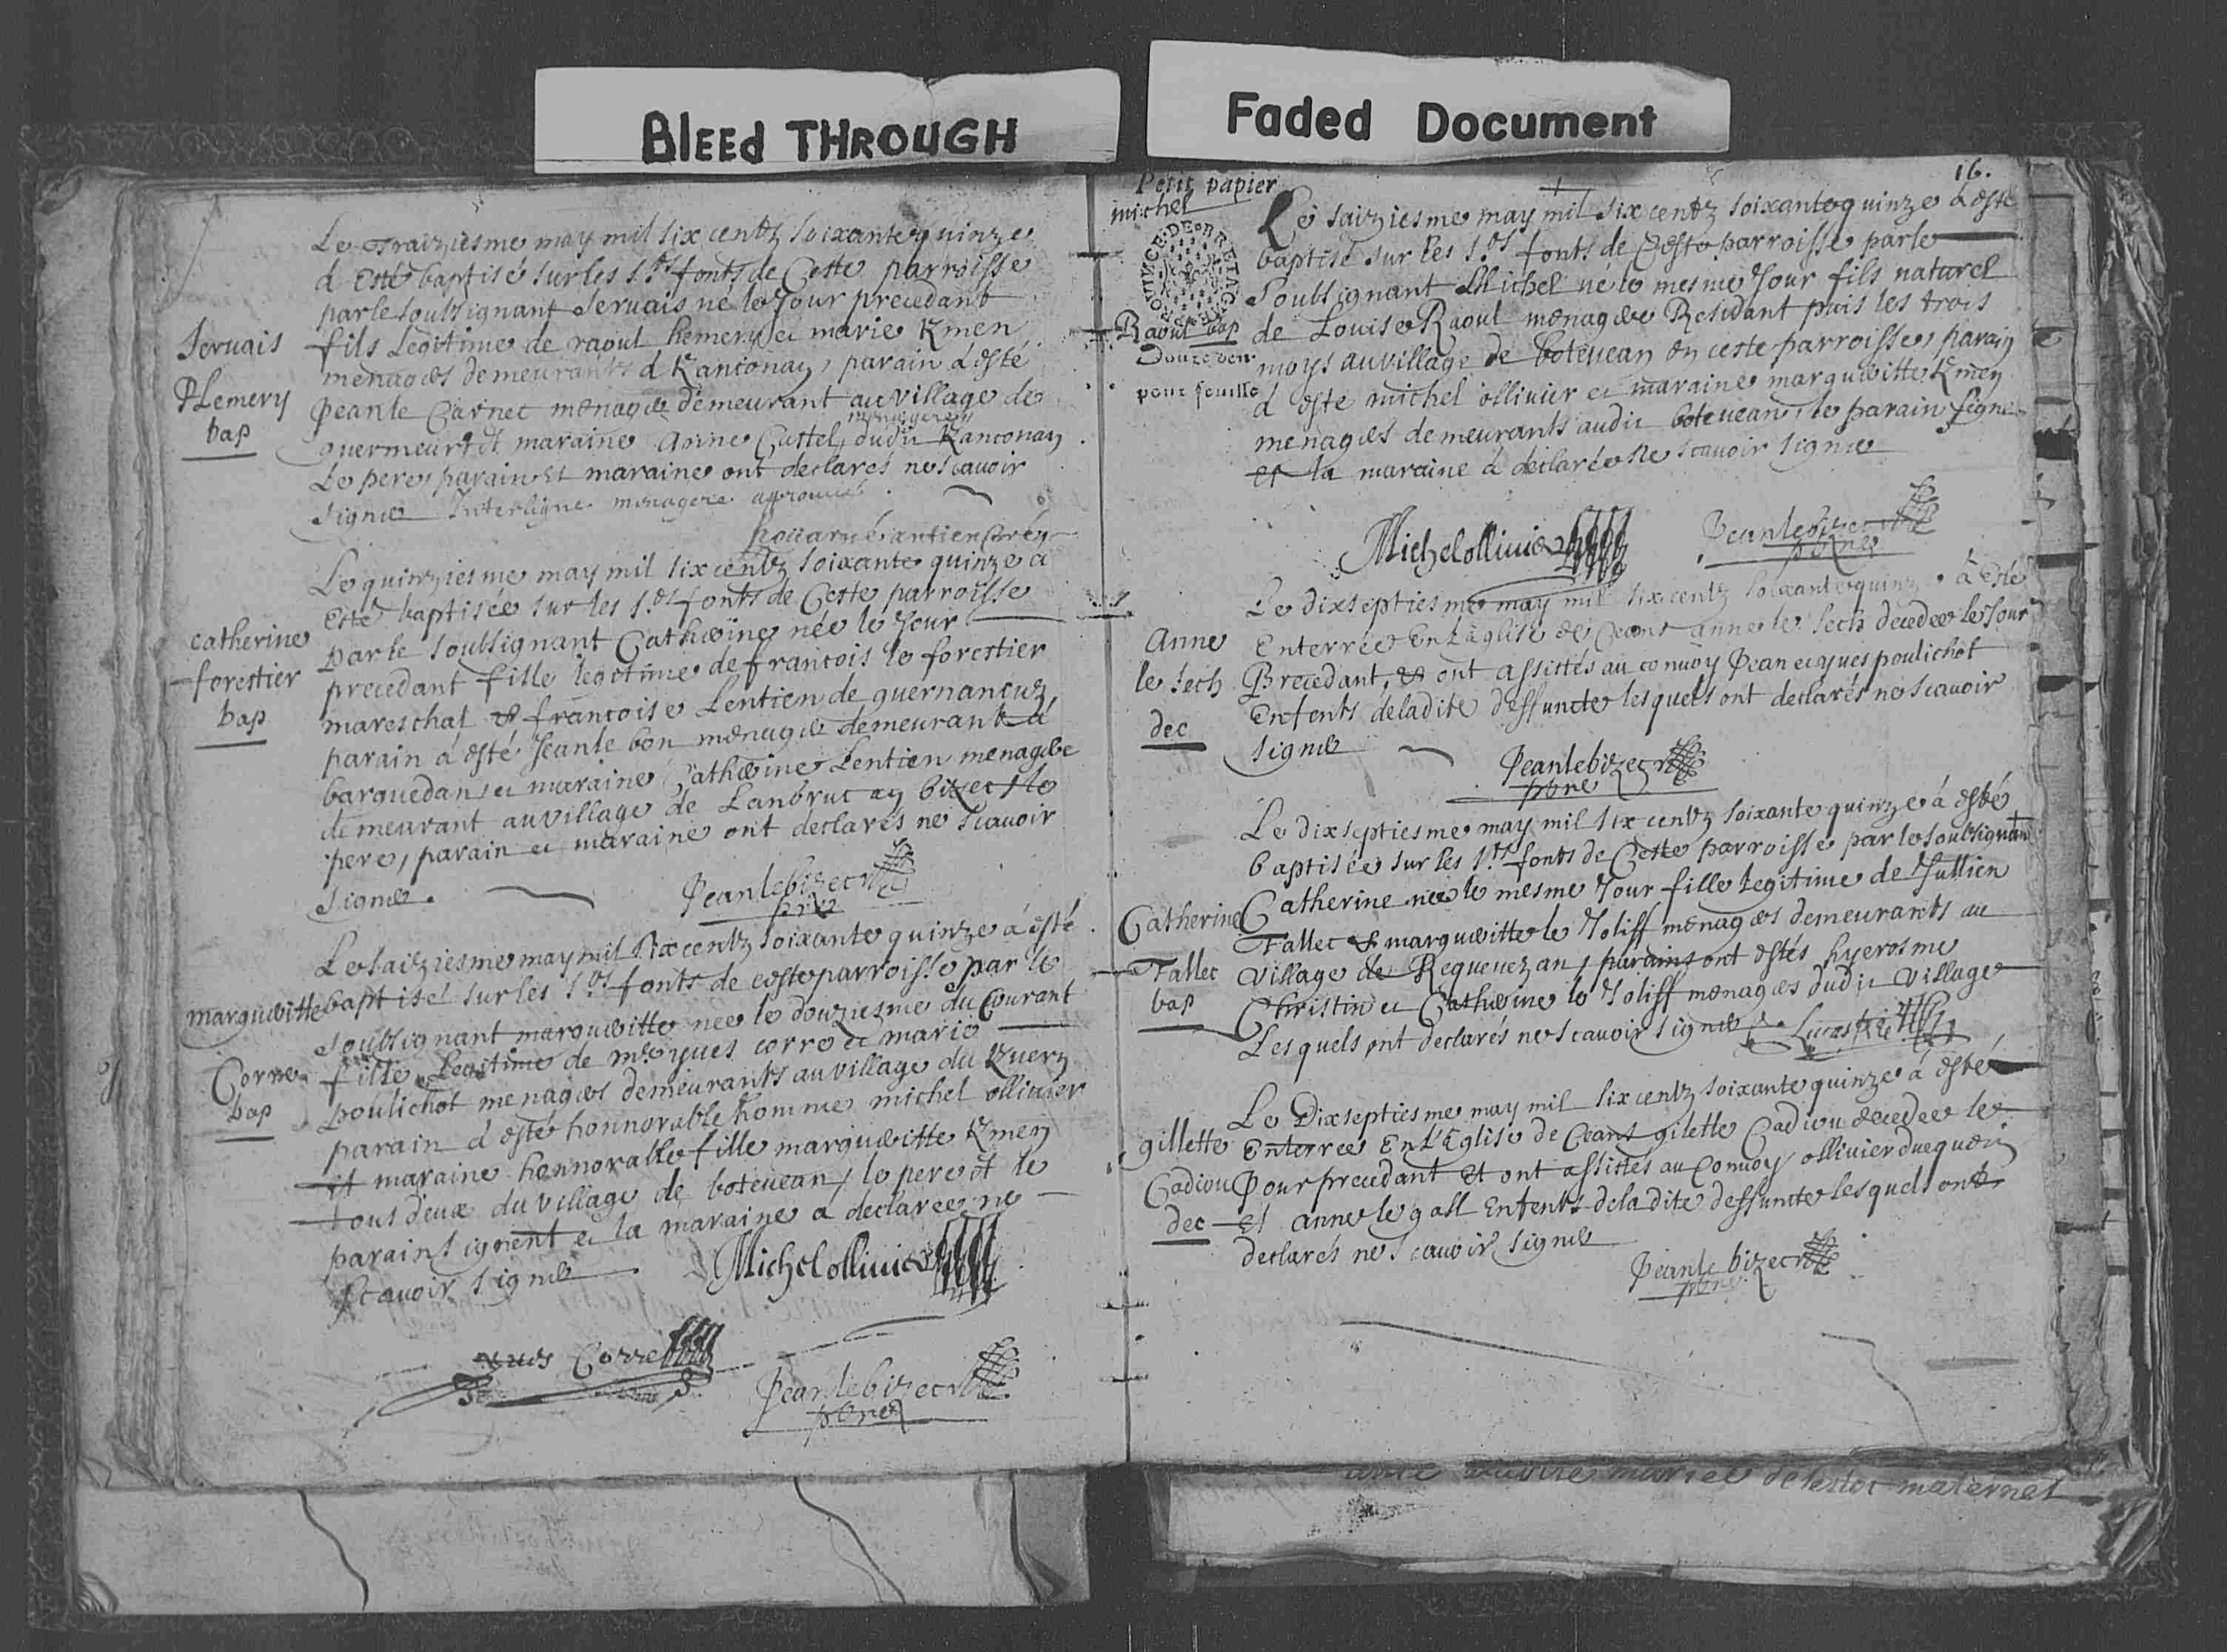 BLEEd THROUGH
Faded Document
Le Traiziesme may mil six centz soixante quinze
a esté baptisé sur les s.ts fonts de Ceste parroisse
par le soubsignant Servais né le Jour precedant
fils Legitime de raoul hemery et marie Kmen
menagers demeurants à Kanconay, parain à esté
Jean le Carnec menager demeurant au village de
menagere
quermeur et maraine Anne Castel, dudit Kanconay
Le pere, parain et maraine ont declarés ne scavoir
signer Interligne menagere approuvé
Servais
Hemery
bap
Le quinziesme may mil six centz soixante quinze a
Esté baptisée sur les s.ts fonts de Ceste parroisse
par le soubsignant Catherine née le Jour
precedant fille legitime de francois le forestier
mareschal et francoise Lentien de guernancuz,
parain à esté Jean le bon menager demeurant à
barguedan, et maraine Catherine Lentien menagere
demeurant au village de Lanbruc an bizec, le
pere, parain et maraine ont declarés ne scavoir
signer.
catherine
forestier
bap
Jean le bizec
pbre
Le saiziesme may mil six centz soixante quinze à esté
baptisé sur les s.ts fonts de ceste parroisse par le
soubsignant margueritte née le douziesme du Courant
fille Legitime de m.e yves corre et marie
poulichot menagers demeurants au village du Kuern
parain à esté honnorable homme michel ollivier
et maraine honnorable fille margueritte Kmen
tous deux du village de botevean, le pere et le
parain signent et la maraine a declarée ne
scavoir signer
margueritte
Corre
bap
Michel ollivier
Yves Corre
Jean le bizec
pbre
16.
Petit papier
michel
PROVINCE DE BRETAGNE
Raoul bap
Douze den.
pour feuille
Le saiziesme may mil six centz soixante quinze à esté
baptisé sur les s.ts fonts de Ceste parroisse par le
soubsignant Michel né le mesme Jour fils naturel
de Louise Raoul menagere Residant puis les trois
moys au village de botevean en ceste parroisse, parain
à esté michel ollivier et maraine margueritte Kmen
menagers demeurants audit botevean, le parain signe
et la maraine à declarée ne scavoir signer
Michel ollivier
Jean le bizec
pbre
Le dixseptiesme may mil six centz soixante quinze à Esté
Enterrée En L'églisse de Ceans anne le sech decedée le Jour
Precedant, et ont assistés au convoy Jean et yves poulichot
Enfents de ladite deffuncte lesquels ont declarés ne scavoir
signer
Anne
le sech
dec
Jean le bizec
pbre
Le dixseptiesme may mil six centz soixante quinze à esté
baptisée sur les s.ts fonts de Ceste parroisse par le soubsignant
Catherine née le mesme Jour fille legitime de Jullien
Fallec et margueritte le Joliff menagers demeurants au
village de Reguenezan, parains ont estés hyerosme
Christin et Catherine le Joliff menagers dudit village
Lesquels ont declarés ne scavoir signer
Catherine
Fallec
bap
Le Dixseptiesme may mil six centz soixante quinze à esté
Enterrée En L'Eglise de Ceans gilette Cadiou decedée le
Jour precedant et ont assistés au convoy ollivier
et anne le gall Enfents de la dite deffuncte lesquels ont
declarés ne scavoir signer
gillette
Cadiou
dec
Jean le bizec
pbre
maternel